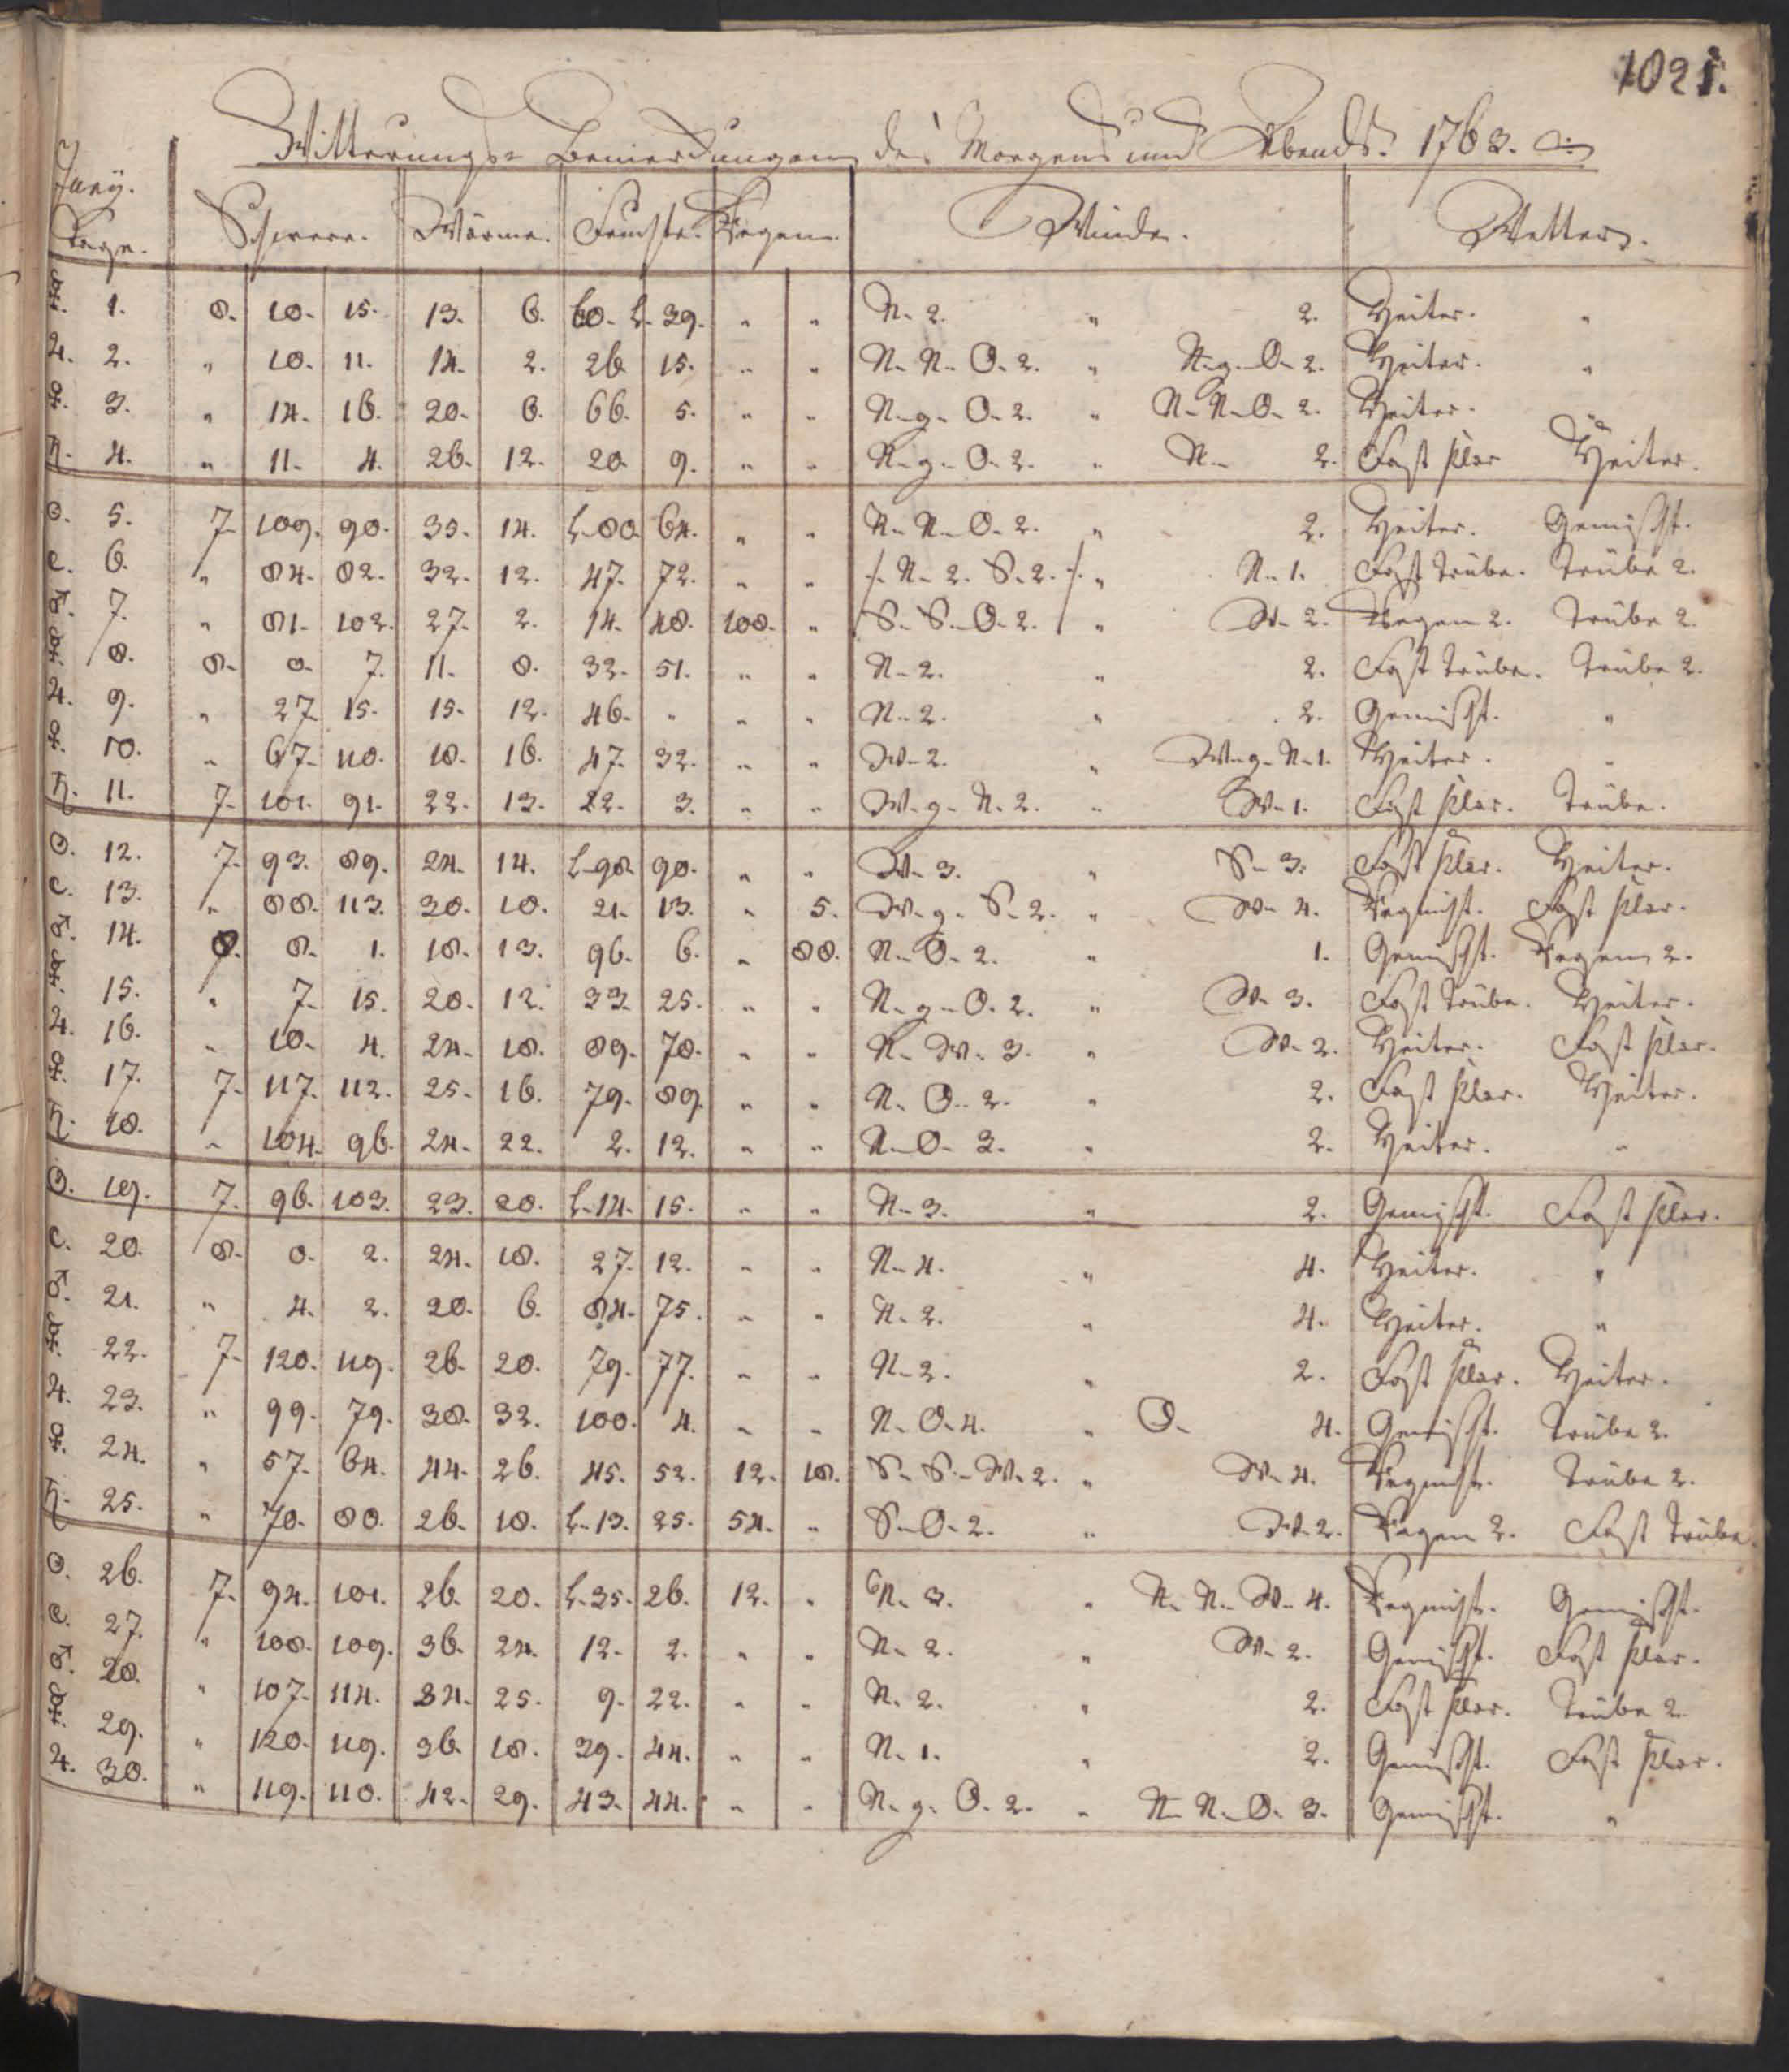 1021.
Witterungs- Bemerkungen des Morgens und Abends. 1763.
Juny. Tage. Schwere. Wärme. Feuchte. Regen. Winde. Wetter.
☿. 1. 8. 10. 15. 13. 6. L. 39. " " N. 2. " 2. Heiter. "
♃. 2. " 10. 11. 14. 2. 26. 15. " " N. N. O. 2. " N. g. O. 2. Heiter. "
♀. 3. " 14. 16. 20. 8. 66. 5. " " N. g. O. 2. " N. N. O. 2. Heiter.
♄. 4. " 11. 4. 26. 12. 20. 9. " " N. g. O. 2. " N. 2. Fast klar Heiter.
☉. 5. 7. 109. 90. 35. 14. L. 80. 64. " " N. N. O. 2. " 2. Heiter. Gemischt.
☾. 6. " 84. 82. 32. 12. 47. 72. " " /. N. 2. S. 2. /. " N. 1. Fast trübe. Trübe 2.
♂. 7. " 81. 102. 27. 2. 14. 48. 108. " S. S. O. 2. " W. 2. Regen 2. Trübe 2.
☿. 8. 8. 0. 7. 11. 8. 32. 51. " " N. 2. " 2. Fast trübe. Trübe 2.
♃. 9. " 27. 15. 15. 12. 46. " " " N. 2. " 2. Gemischt. "
♀. 10. " 67. 110. 18. 16. 47. 32. " " W. 2. " W. g. N. 1. Heiter. "
♄. 11. 7. 101. 91. 22. 13. 22. 3. " " W. g. N. 2. " W. 1. Fast klar. Trübe.
☉. 12. 7. 93. 89. 24. 14. L. 98. 90. " " W. 3. " S. 3. Fast klar. Heiter.
☾. 13. " 88. 113. 30. 10. 21. 13. " 5. W. g. S. 2. " W. 4. Regnicht. Fast klar.
♂. 14. 8. 8. 1. 18. 13. 96. 6. " 88. N. O. 2. " 1. Gemischt. Regen 2.
☿. 15. " 7. 15. 20. 12. 33. 25. " " N. g. O. 2. " W. 3. Fast trübe. Heiter.
♃. 16. " 10. 4. 24. 18. 89. 78. " " N. W. 3. " W. 2. Heiter. Fast klar.
♀. 17. 7. 117. 112. 25. 16. 79. 89. " " N. O. 2. " 2. Fast klar. Heiter.
♄. 18. " 104. 96. 24. 22. 2. 12. " " N. O. 3. " 2. Heiter. "
☉. 19. 7. 96. 103. 23. 20. L. 14. 15. " " N. 3. " 2. Gemischt. Fast klar.
☾. 20. 8. 0. 2. 24. 18. 27. 12. " " N. 4. " 4. Heiter. "
♂. 21. " 4. 2. 20. 6. 84. 75. " " N. 2. " 4. Heiter. "
☿. 22. 7. 120. 119. 26. 20. 79. 77. " " N. 2. " 2. Fast klar. Heiter.
♃. 23. " 99. 79. 38. 32. 100. 4. " " N. O. 4. " O. 4. Gemischt. Trübe 2.
♀. 24. " 57. 64. 44. 26. 45. 52. 12. 18. S. S. W. 2. " W. 4. Regnicht. Trübe 2.
♄. 25. " 70. 80. 26. 18. L. 13. 25. 54. " S. O. 2. " W. 2. Regen 2. Fast trübe.
☉. 26. 7. 94. 101. 26. 20. L. 35. 26. 12. " N. 3. " N. N. W. 4. Regnicht. Gemischt.
☾. 27. " 108. 109. 36. 24. 12. 2. " " N. 2. " W. 2. Gemischt. Fast klar.
♂. 28. " 107. 114. 34. 25. 9. 22. " " N. 2. " 2. Fast klar. Trübe 2.
☿. 29. " 120. 119. 36. 18. 39. 44. " " N. 1. " 2. Gemischt. Fast klar.
♃. 30. " 119. 110. 42. 29. 43. 44. " " N. g. O. 2. " N. N. O. 3. Gemischt. "